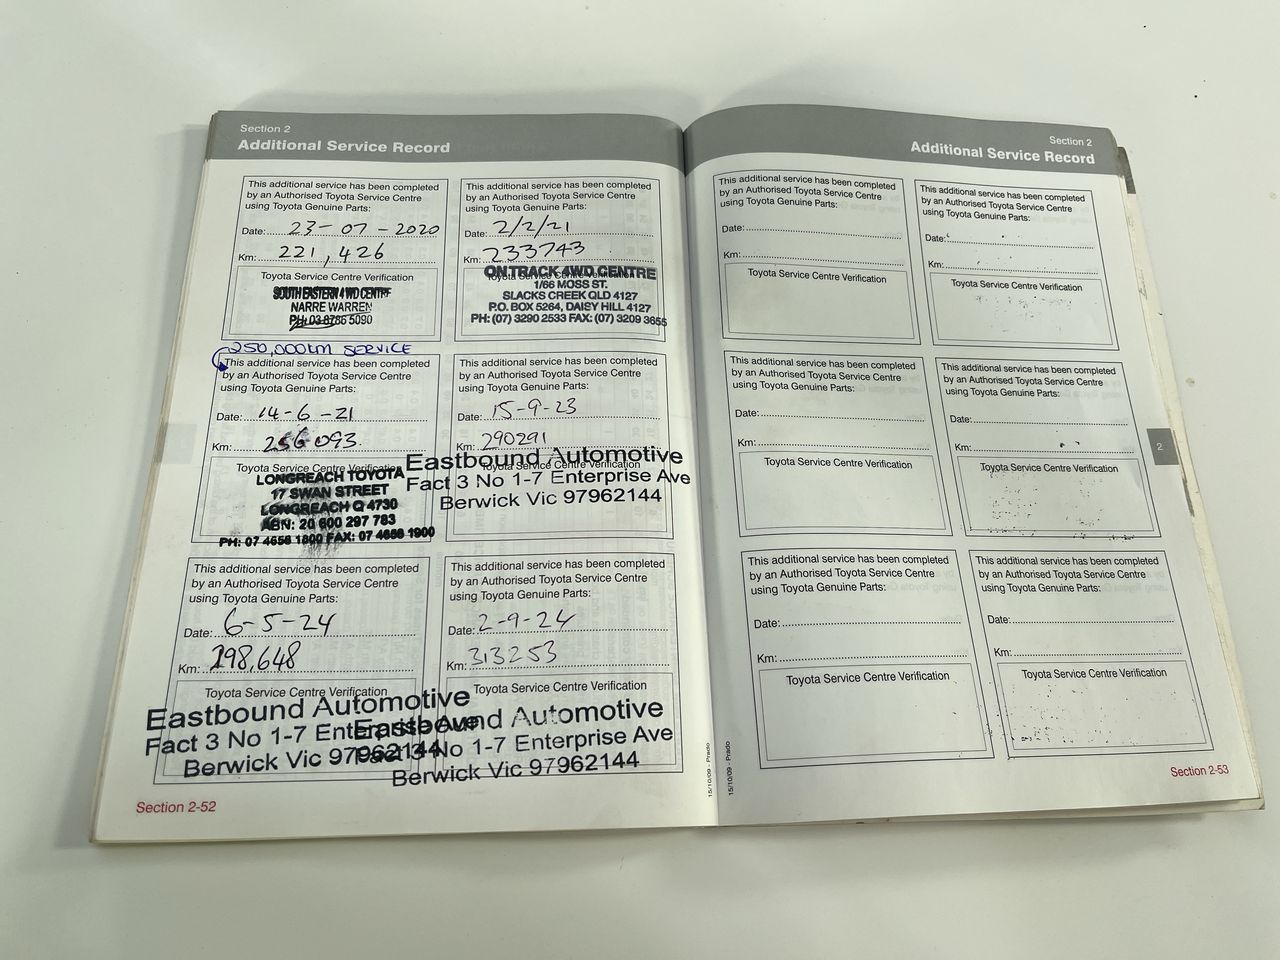 Section 2
Additional Service Record
This additional service has been completed
by an Authorised Toyota Service Centre
using Toyota Genuine Parts:
Date: 23-07-2020
Km: 221,426
Toyota Service Centre Verification
SOUTH EASTERN 4WD CENTRE
NARRE WARREN
PH: 03 8786 5090
This additional service has been completed
by an Authorised Toyota Service Centre
using Toyota Genuine Parts:
Date: 2/2/21
Km: 233743
Toyota Service Centre Verification
ON TRACK 4WD CENTRE
1/66 MOSS ST.
SLACKS CREEK QLD 4127
P.O. BOX 5264, DAISY HILL 4127
PH: (07) 3290 2533 FAX: (07) 3209 3655
250,000km SERVICE
This additional service has been completed
by an Authorised Toyota Service Centre
using Toyota Genuine Parts:
Date: 14-6-21
Km: 256093
Toyota Service Centre Verification
LONGREACH TOYOTA
17 SWAN STREET
LONGREACH Q 4730
ABN: 20 600 297 783
PH: 07 4658 1800 FAX: 07 4658 1900
This additional service has been completed
by an Authorised Toyota Service Centre
using Toyota Genuine Parts:
Date: 15-9-23
Km: 290291
Toyota Service Centre Verification
Eastbound Automotive
Fact 3 No 1-7 Enterprise Ave
Berwick Vic 97962144
This additional service has been completed
by an Authorised Toyota Service Centre
using Toyota Genuine Parts:
Date: 6-5-24
Km: 298,648
Toyota Service Centre Verification
Eastbound Automotive
Fact 3 No 1-7 Enterprise Ave
Berwick Vic 97962144
This additional service has been completed
by an Authorised Toyota Service Centre
using Toyota Genuine Parts:
Date: 2-9-24
Km: 313253
Toyota Service Centre Verification
Eastbound Automotive
Fact 3 No 1-7 Enterprise Ave
Berwick Vic 97962144
Section 2-52
15/10/09 - Prado
Section 2
Additional Service Record
This additional service has been completed
by an Authorised Toyota Service Centre
using Toyota Genuine Parts:
Date:
Km:
Toyota Service Centre Verification
This additional service has been completed
by an Authorised Toyota Service Centre
using Toyota Genuine Parts:
Date:
Km:
Toyota Service Centre Verification
This additional service has been completed
by an Authorised Toyota Service Centre
using Toyota Genuine Parts:
Date:
Km:
Toyota Service Centre Verification
This additional service has been completed
by an Authorised Toyota Service Centre
using Toyota Genuine Parts:
Date:
Km:
Toyota Service Centre Verification
2
This additional service has been completed
by an Authorised Toyota Service Centre
using Toyota Genuine Parts:
Date:
Km:
Toyota Service Centre Verification
This additional service has been completed
by an Authorised Toyota Service Centre
using Toyota Genuine Parts:
Date:
Km:
Toyota Service Centre Verification
15/10/09 - Prado
Section 2-53